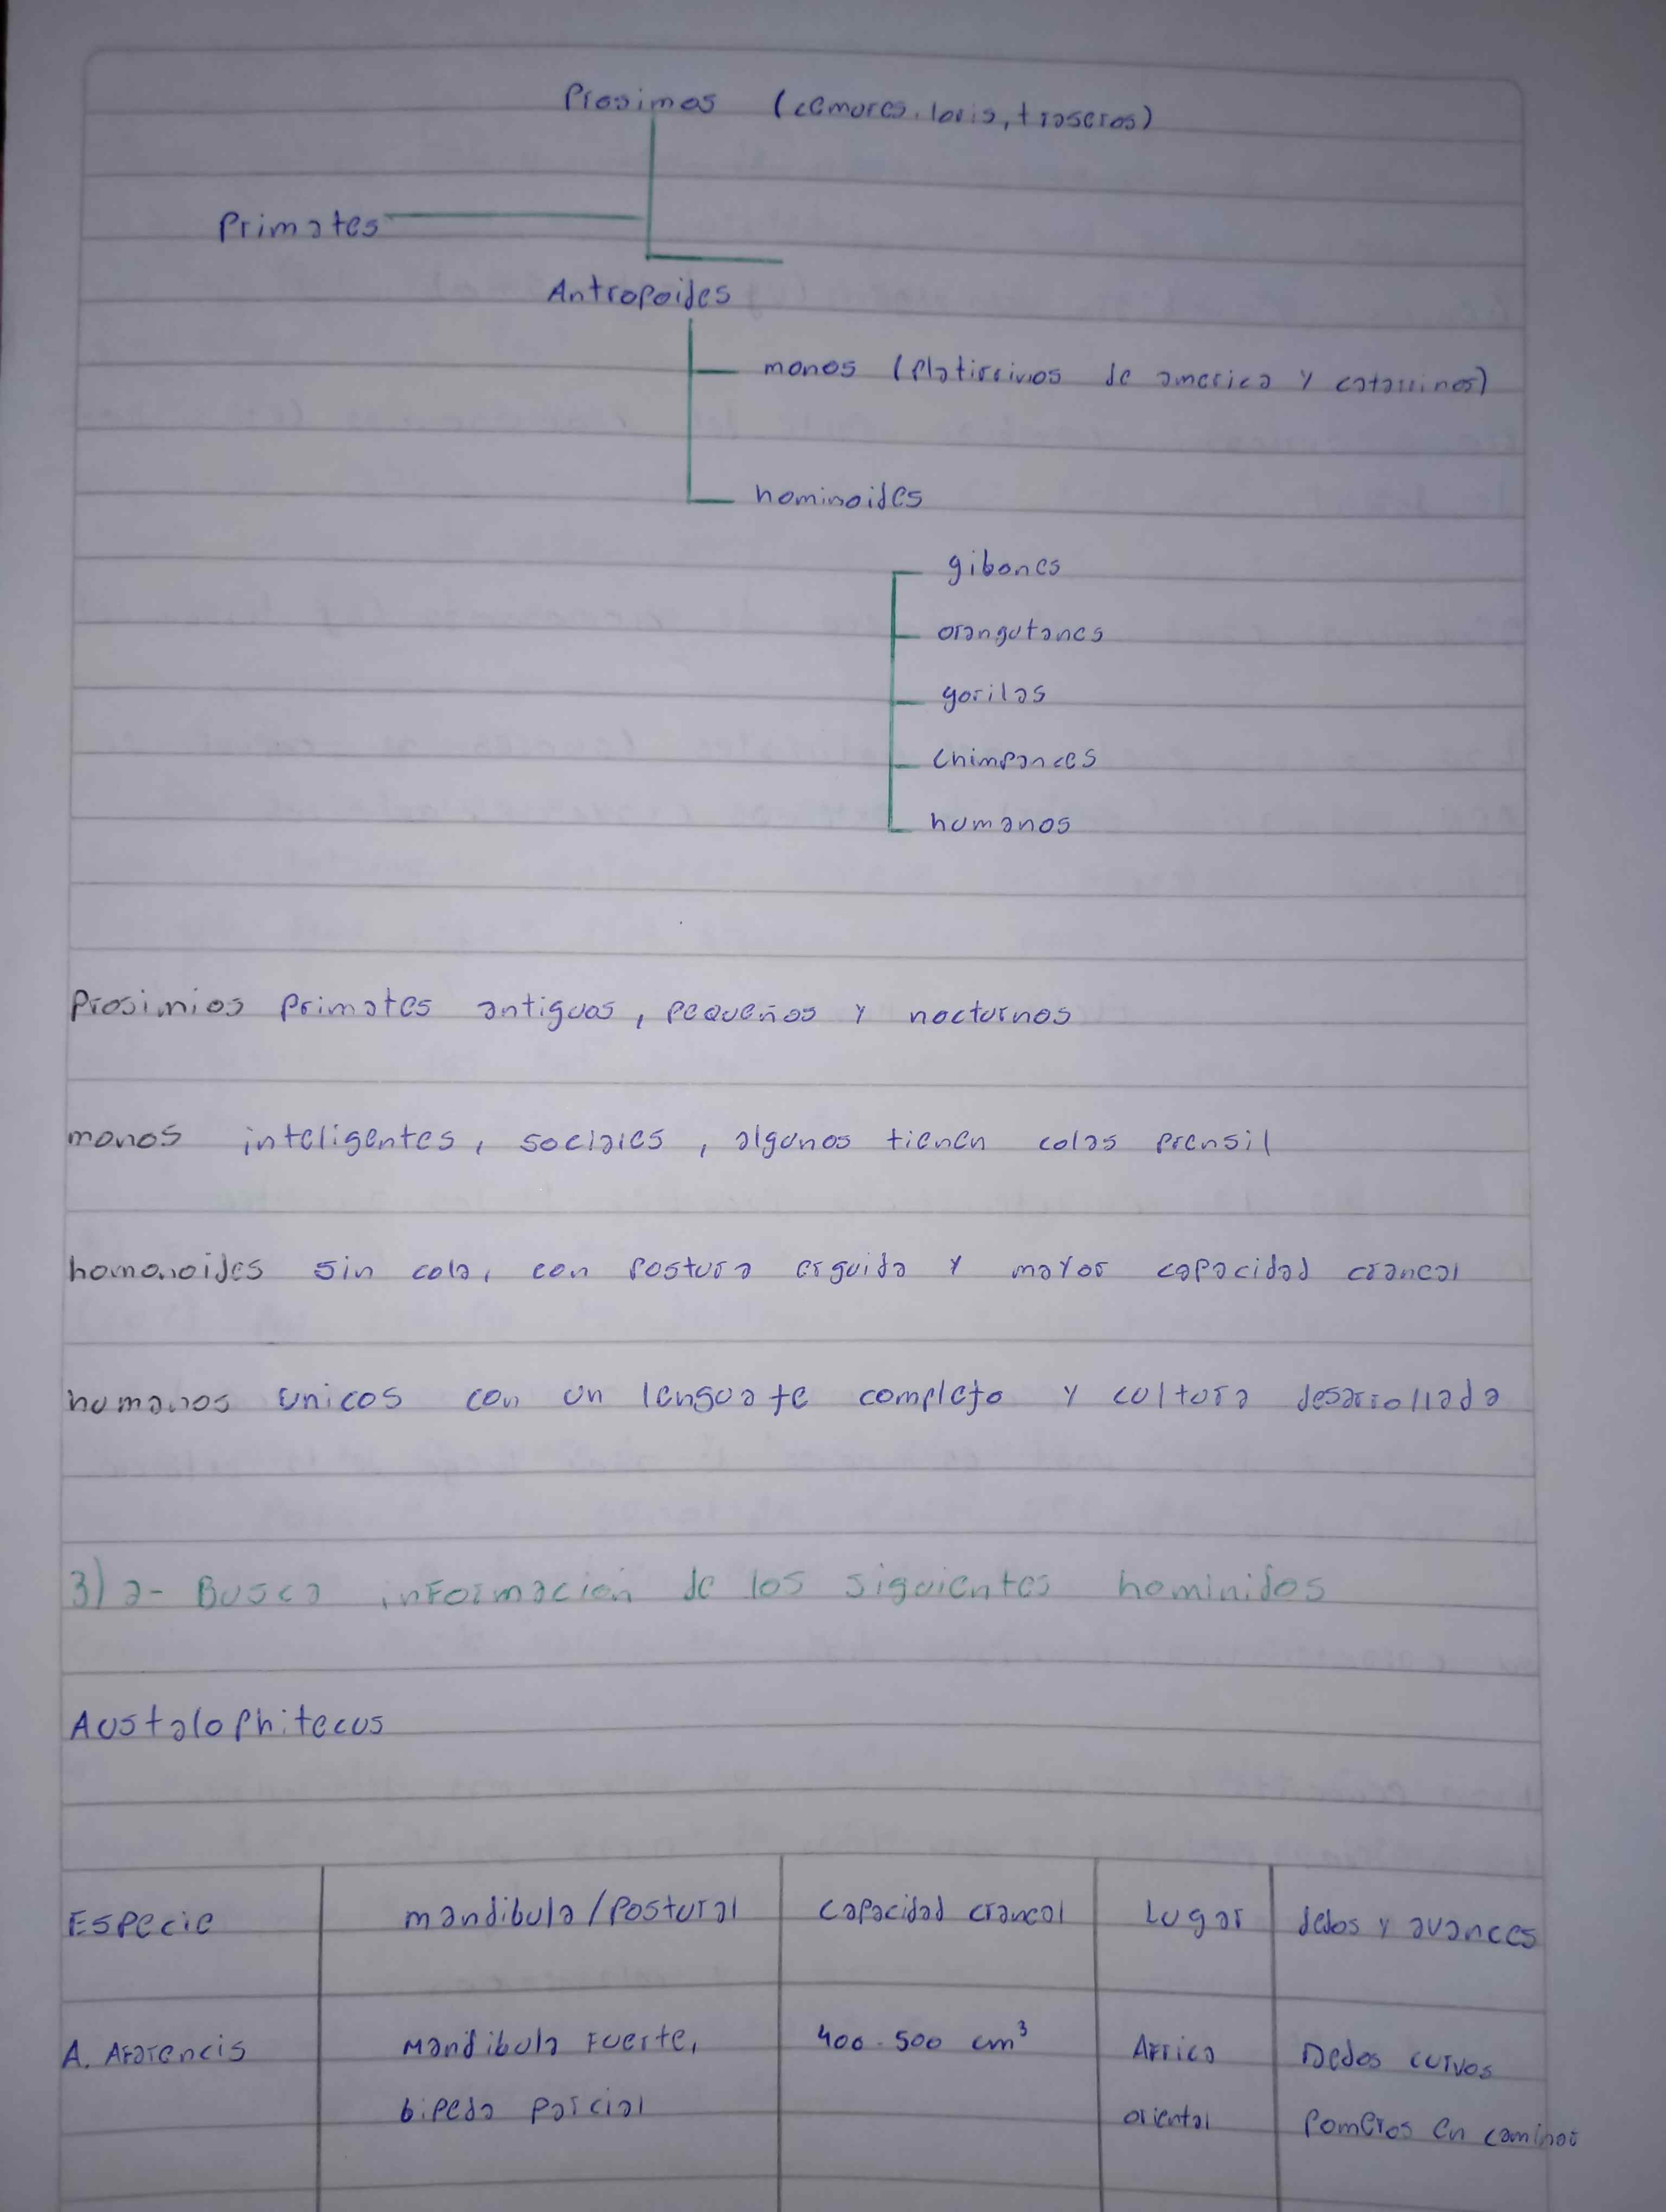 Prosimos (lemures. loris, traseros)
Primates
Antropoides
monos (Platirrinos de america y catarrinos)
hominoides
gibones
orangutanes
gorilas
chimpances
humanos
Prosimios Primates antiguos, pequeños y nocturnos
monos inteligentes, sociales, algunos tienen colas prensil
homonoides sin cola, con postura erguida y mayor capacidad craneal
humanos unicos con un lenguaje complejo y cultura desarrollada
3) a- Busca información de los siguientes hominidos
Austalophitecus
Especie mandibula/Postural capacidad craneal Lugar dedos y avances
A. Afarencis Mandibula Fuerte, 400-500 cm³ Africa Dedos curvos
bipeda parcial oriental Pomeros en caminar